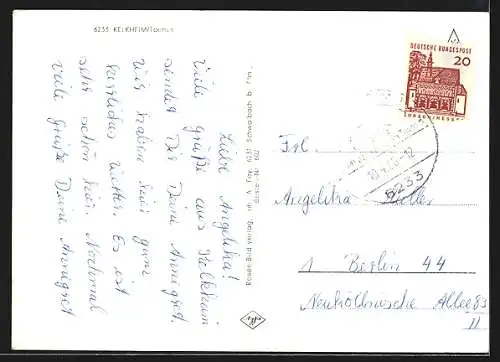 6233 KELKHEIM/Taunus
Liebe Angelika!
Viele Grüße aus Kelkheim
sendet Dir Deine Annegret.
Wir haben hier ganz
herrliches Wetter. Es ist
sehr schön hier. Nochmal
viele Grüße Deine Annegret
Rower-Bild verlag, Inh. A. Frey, 6231 Schwalbach b. Ffm.
DEUTSCHE BUNDESPOST
20
6233
Frl.
Angelika
1 Berlin 44
Neuköllnische Allee 83
II